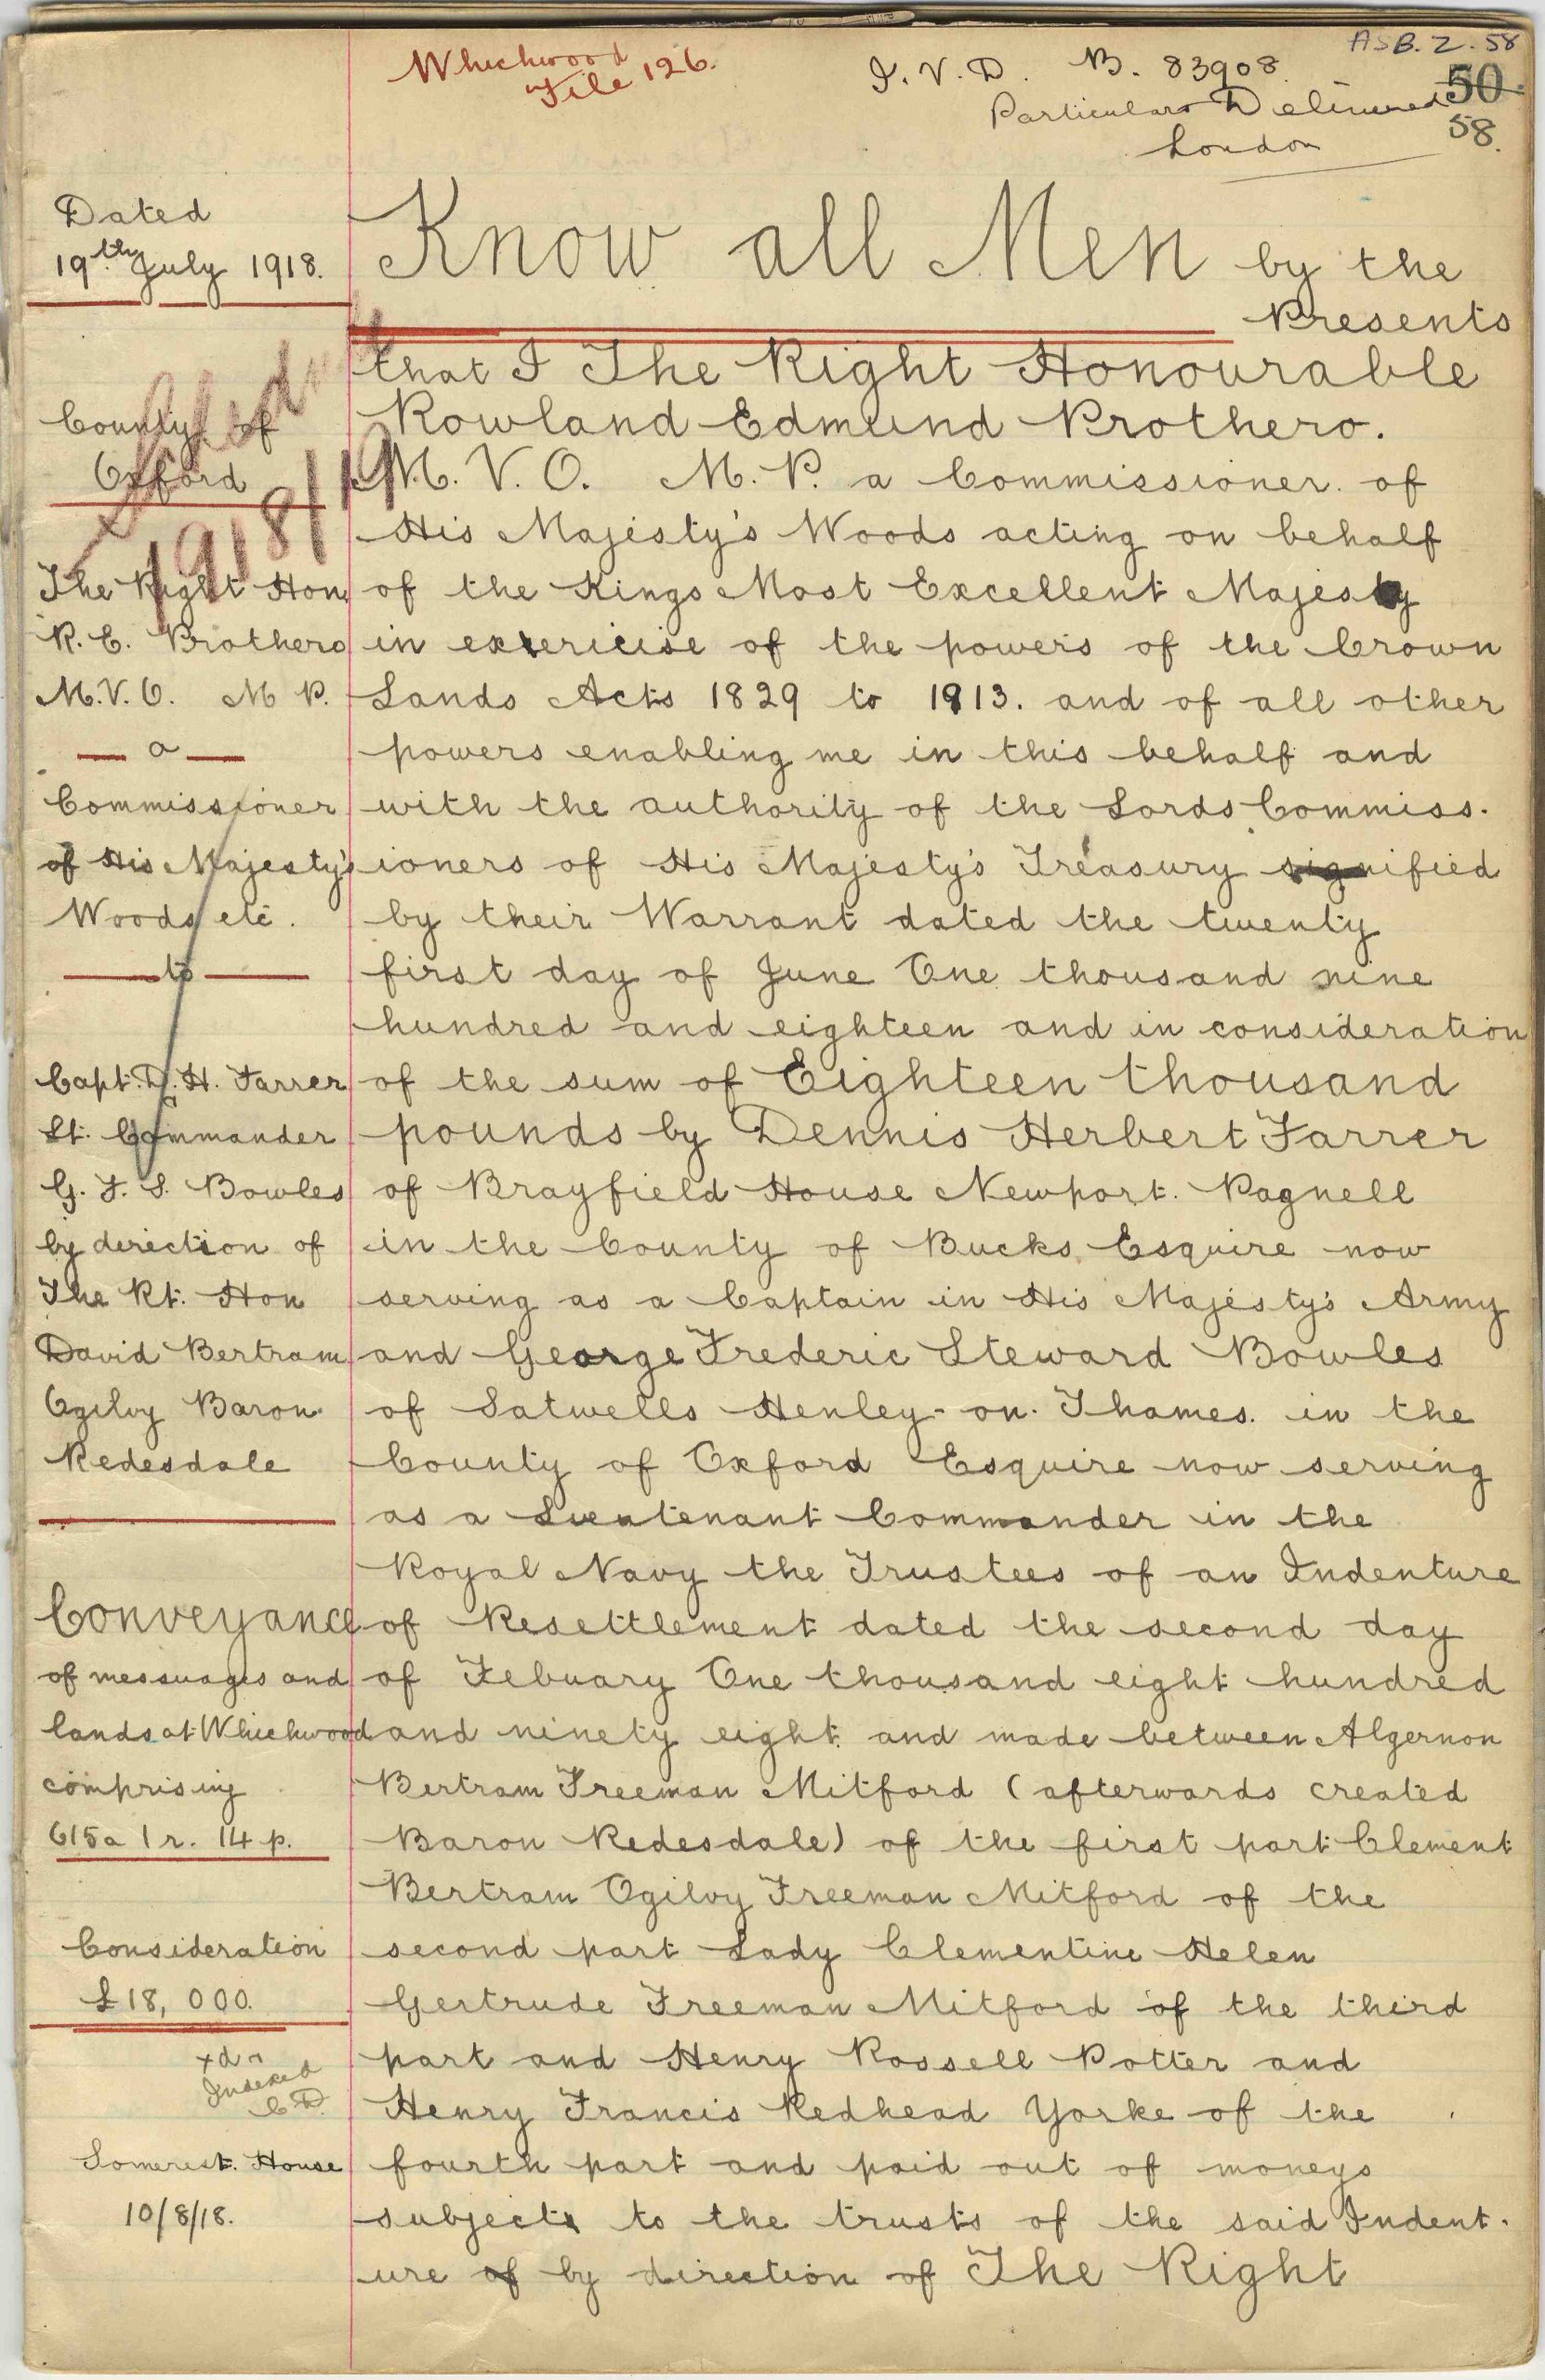 Whichwood
File 126.
I. V. D. B. 83908
ASB. 2. 58
50
Particulars Delivered
58.
London
Dated
19th July 1918.
County of
Oxford
1918/19
The Right Hon
R. E. Prothero
M.V.O. M P.
a
Commissioner
of His Majesty's
Woods etc.
to
Capt. D. H. Farrer
Lt. Commander
G. F. S. Bowles
by direction of
The Rt. Hon
David Bertram
Ogilvy Baron
Redesdale
Conveyance
of messuages and
lands at Whichwood
comprising
615a 1 r. 14 p.
Consideration
£18,000.
Indexed
Somerset House
10/8/18.
Know all Men by the
Presents
that I The Right Honourable
Rowland Edmund Prothero.
M. V. O. M. P. a Commissioner of
His Majesty's Woods acting on behalf
of the Kings Most Excellent Majesty
in exericise of the powers of the Crown
Lands Acts 1829 to 1913. and of all other
powers enabling me in this behalf and
with the authority of the Lords Commiss-
ioners of His Majesty's Treasury signified
by their Warrant dated the twenty
first day of June One thousand nine
hundred and eighteen and in consideration
of the sum of Eighteen thousand
pounds by Dennis Herbert Farrer
of Brayfield House Newport. Pagnell
in the County of Bucks Esquire now
serving as a Captain in His Majesty's Army
and George Frederic Steward Bowles
of Satwells Henley-on-Thames. in the
County of Oxford Esquire now serving
as a Lieutenant Commander in the
Royal Navy the Trustees of an Indenture
of Resettlement dated the second day
of Febuary One thousand eight hundred
and ninety eight and made between Algernon
Bertram Freeman Mitford (afterwards created
Baron Redesdale) of the first part Clement
Bertram Ogilvy Freeman Mitford of the
second part Lady Clementine Helen
Gertrude Freeman Mitford of the third
part and Henry Rossell Potter and
Henry Francis Redhead Yorke of the
fourth part and paid out of moneys
subject to the trusts of the said Indent-
ure of by direction of The Right